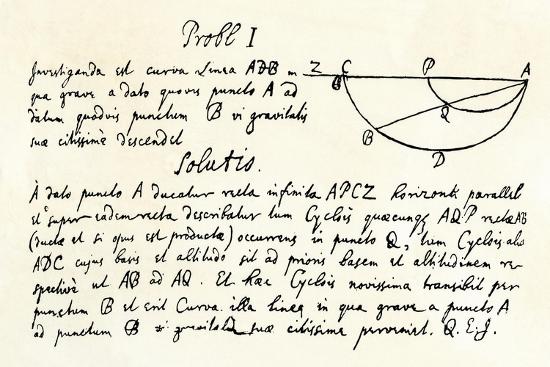 Probl I
Investiganda est curva Linea ADB in
qua grave a dato quovis puncto A ad
datum quodvis punctum B vi gravitatis
suæ citissimè descendet
Z C P A
B
B Q
D
Solutio.
A dato puncto A ducatur recta infinita APCZ horizonti parallela
et super eadem recta describatur tum Cyclois quæcunque AQP rectæ AB
(ductæ et si opus est productæ) occurrens in puncto Q, tum Cyclois alia
ADC cujus basis et altitudo sit ad prioris basem et altitudinem re-
spectivè ut AB ad AQ. Et hæc Cyclois novissima transibit per
punctum B et erit Curva illa linea in qua grave a puncto A
ad punctum B vi gravitatis suæ citissime perveniet. Q.E.I.